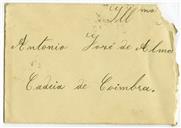 Illmo
Antonio José de Almei
Cadeia de Coimbra.